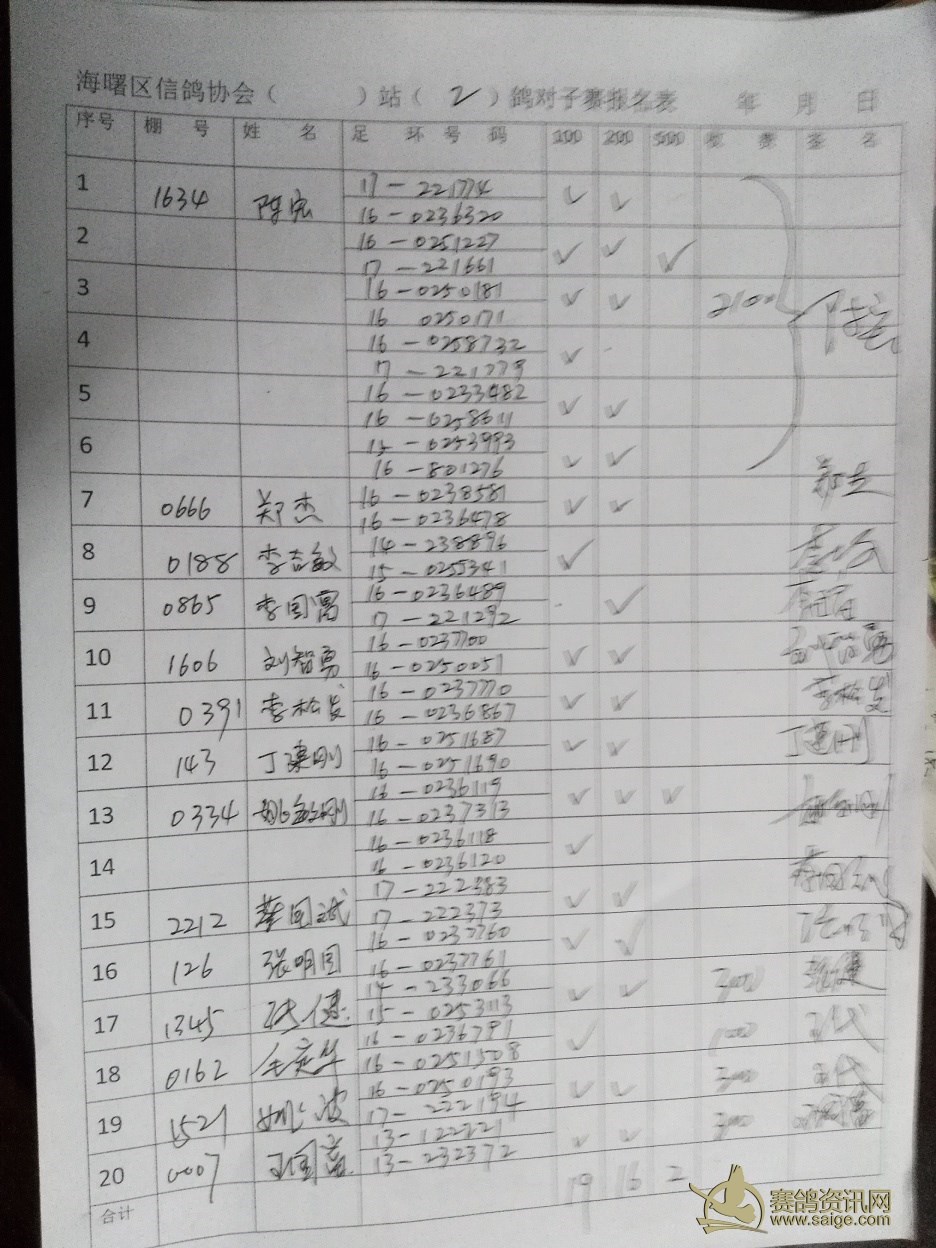 海曙区信鸽协会（ ）站（ 2 ）鸽对子赛报名表 年 月 日
序号 棚 号 姓 名 足 环 号 码 100 200 500 签 名
1 1634 陈宏 17-221774 ✓ ✓
16-0236320
2 16-0251227 ✓ ✓ ✓
17-221661
3 16-0250181 ✓ ✓ 2100
16 0250171
4 16-0258732 ✓
17-221779
5 16-0233482 ✓ ✓
16-0258611
6 15-0253993 ✓ ✓
16-801276
7 0666 郑杰 16-0238581 ✓ ✓
16-0236478
8 0188 李吉敏 14-238896 ✓
15-0255341
9 0865 李国富 16-0236489 ✓
17-221292
10 1606 刘智勇 16-0237700 ✓ ✓
16-0250051
11 0391 李松发 16-0237770 ✓ ✓ 李松发
16-0236867
12 143 丁建刚 16-0251687 ✓ ✓ 丁建刚
16-0251690
13 0334 16-0236119 ✓ ✓ ✓
16-0237313
14 16-0236118 ✓
16-0236120
15 2212 17-222383 ✓ ✓
17-222373
16 126 张明国 16-0237760 ✓ ✓
16-0237761
17 1345 张健 14-233066 ✓ ✓ 300
15-0253113
18 0162 16-0236791 ✓ 100
16-0251508
19 1521 姚波 16-0250193 ✓ ✓ 300
17-222194
20 0007 13-122221 ✓ ✓ 300
13-232372
合计 19 16 2
赛鸽资讯网
www.saige.com